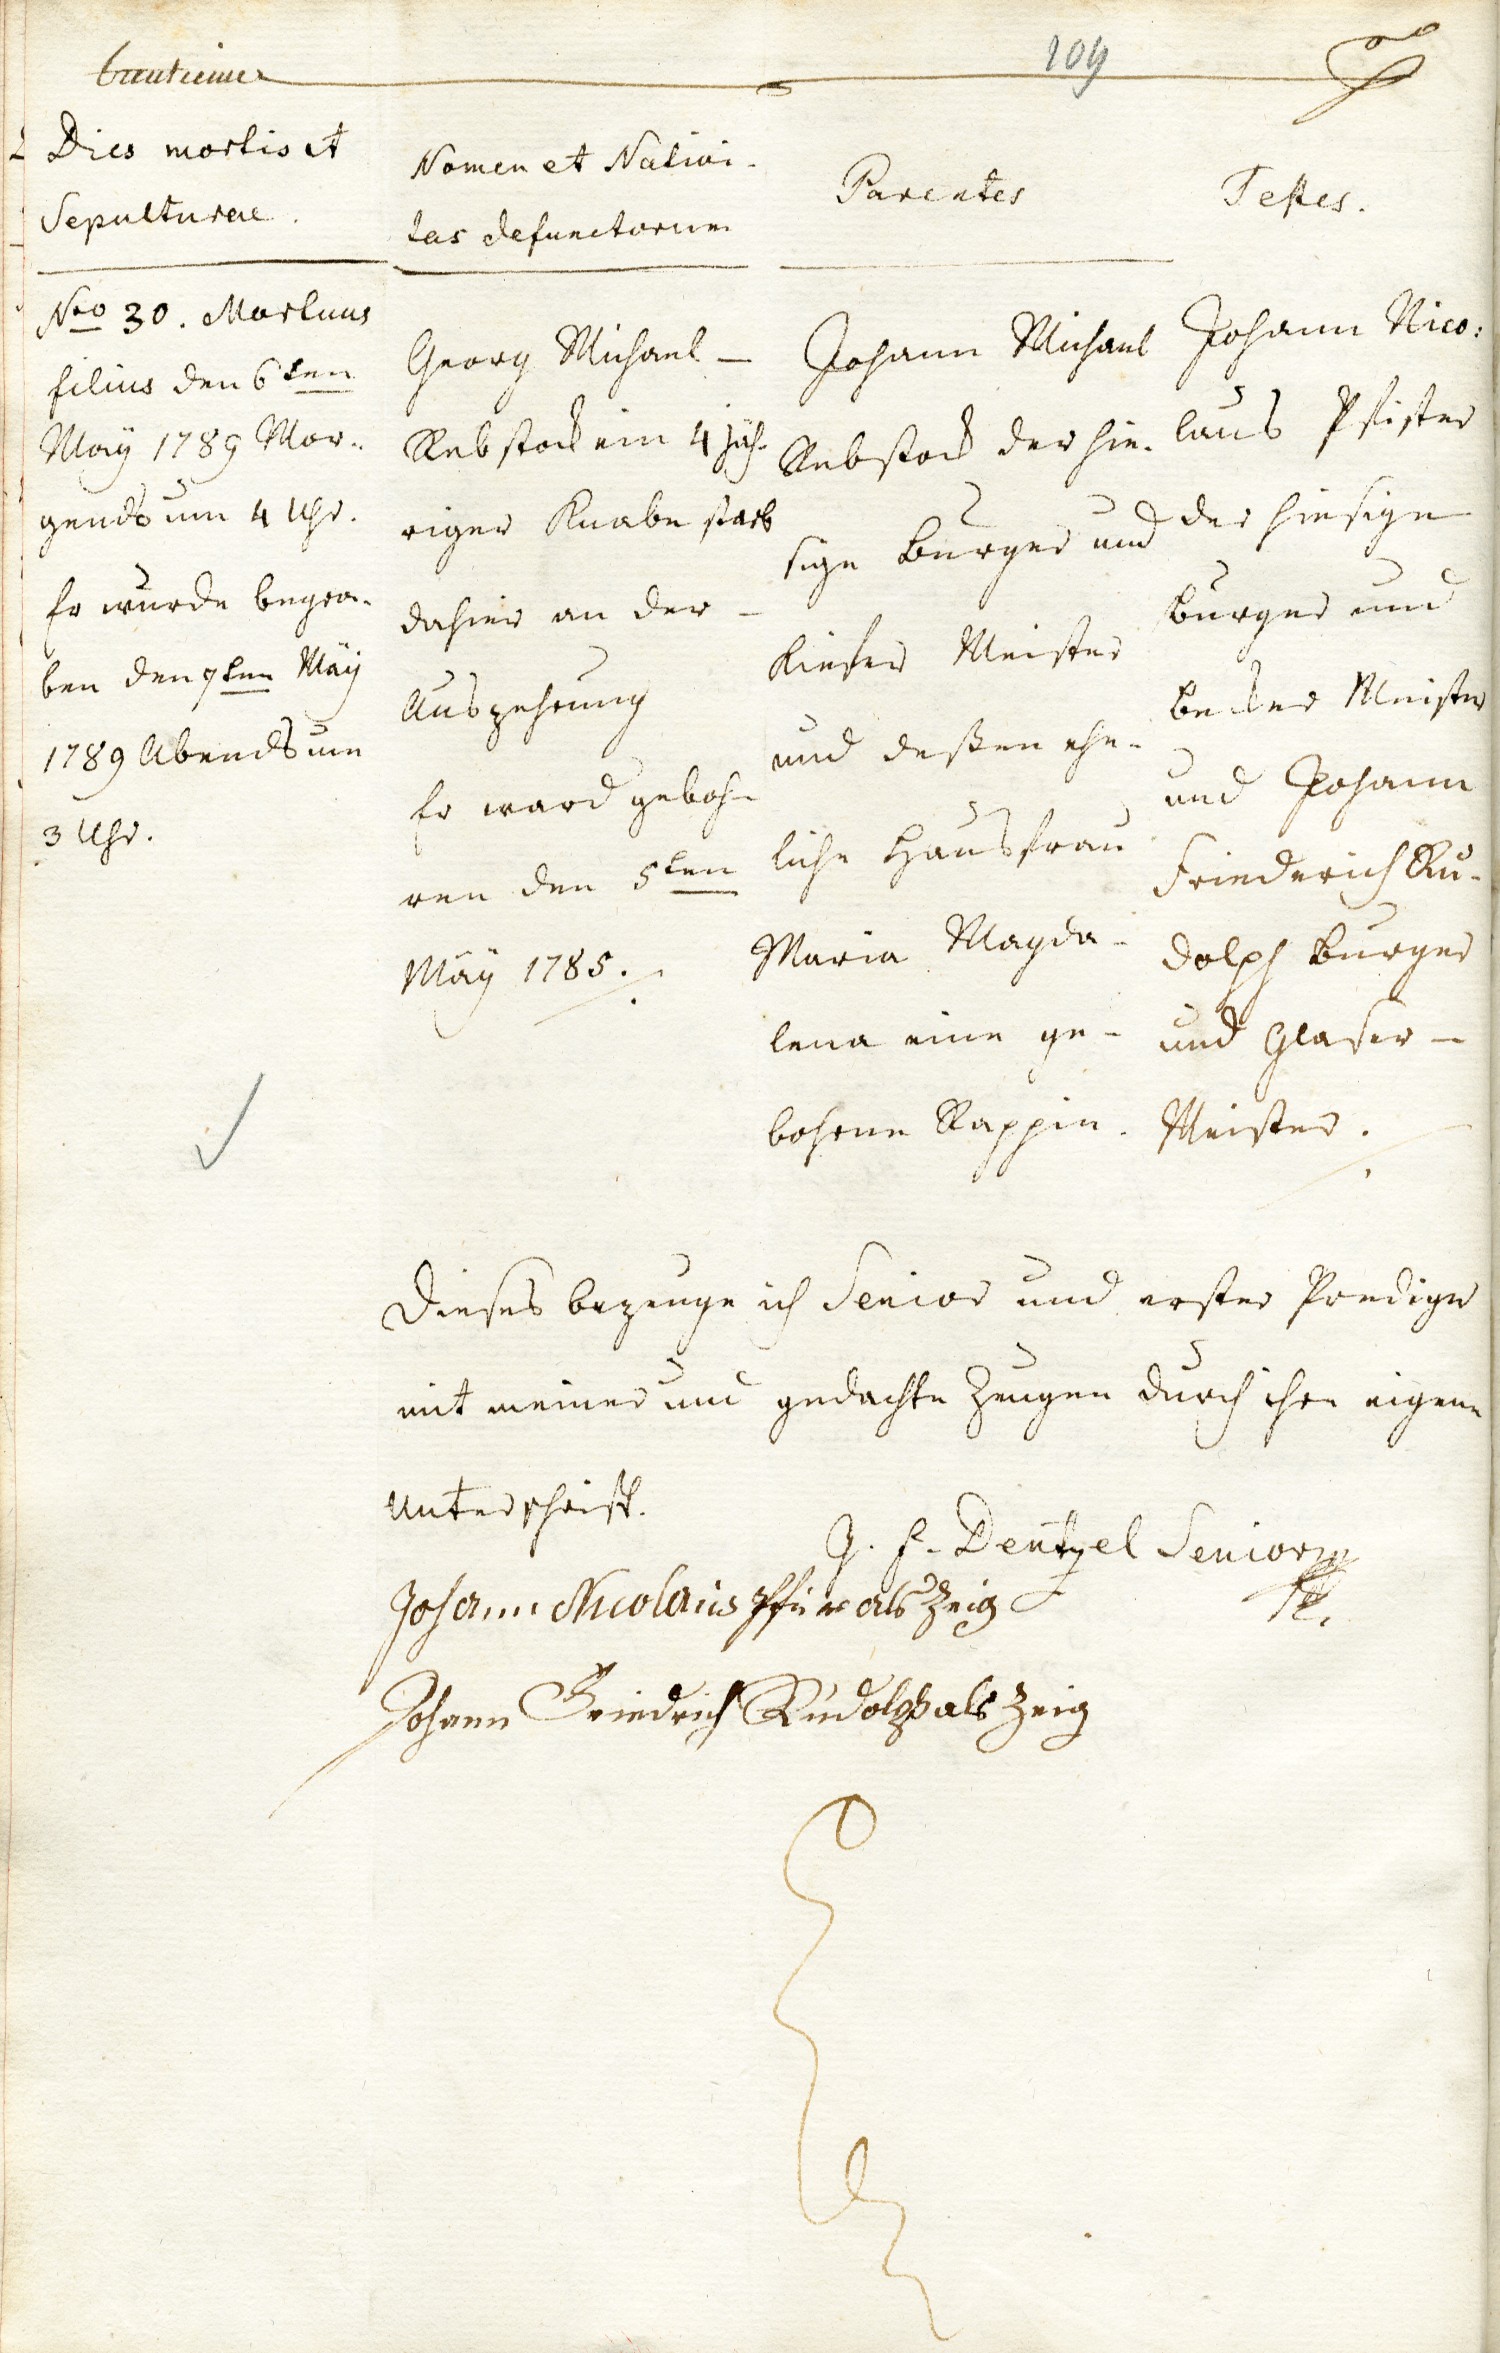 109
Dies mortis et
Sepulturae.
Nomen et Nativi-
tas defunctorum
Parentes
Testes.
Nro 30. Mortuus
filius den 6ten
May 1789 Mor-
gends um 4 Uhr.
Er wurde begra-
ben den 7ten Maÿ
1789 Abends um
3 Uhr.
Georg Michael –
Rebstock ein 4 jäh-
riger Knabe starb
dahier an der –
Auszehrung
Er ward geboh-
ren den 5ten
Maÿ 1785.
Johann Michael
Rebstock der hie-
sige Burger und
Kiefer Meister
und deßen ehe-
liche Hausfrau
Maria Magda-
lena eine ge-
bohrne Rappin.
Johann Nico:
laus Pfister
der hiesige
Burger und
Becker Meister
und Johann
Friederich Ru-
dolph Burger
und Glaser –
Meister.
Dieses bezeuge ich Senior und erster Prediger
mit meiner und gedachte Zeugen durch ihre eigene
Unterschrifft.
G. F. Dentzel Senior
Johann Nicolaus als Zeig
Johann Friedrich Rudolph als Zeig